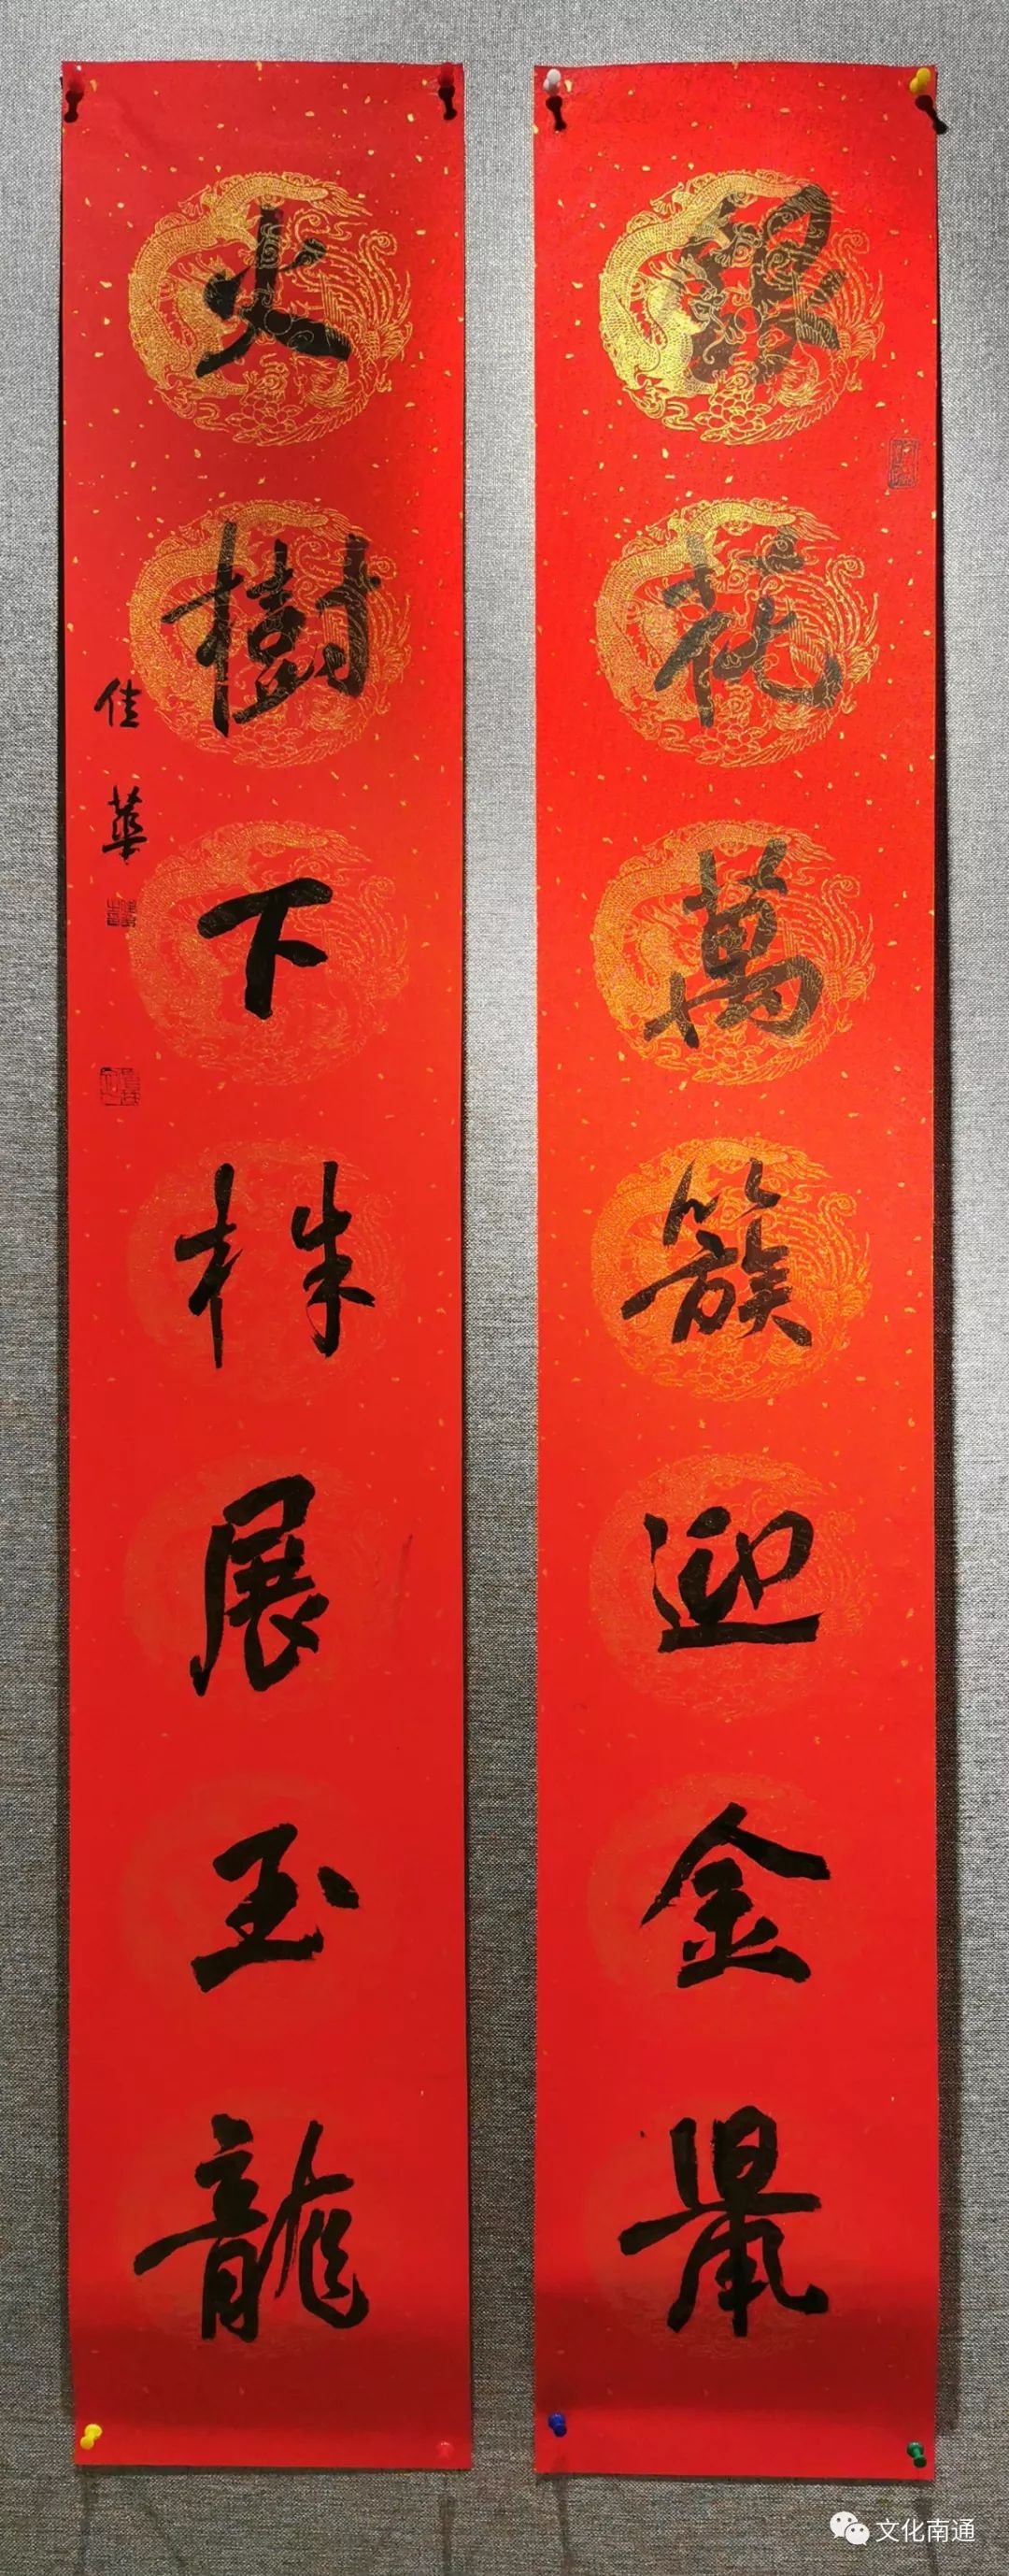 銀花萬簇迎金鼠
火樹下株展玉龍
佳華
文化南通